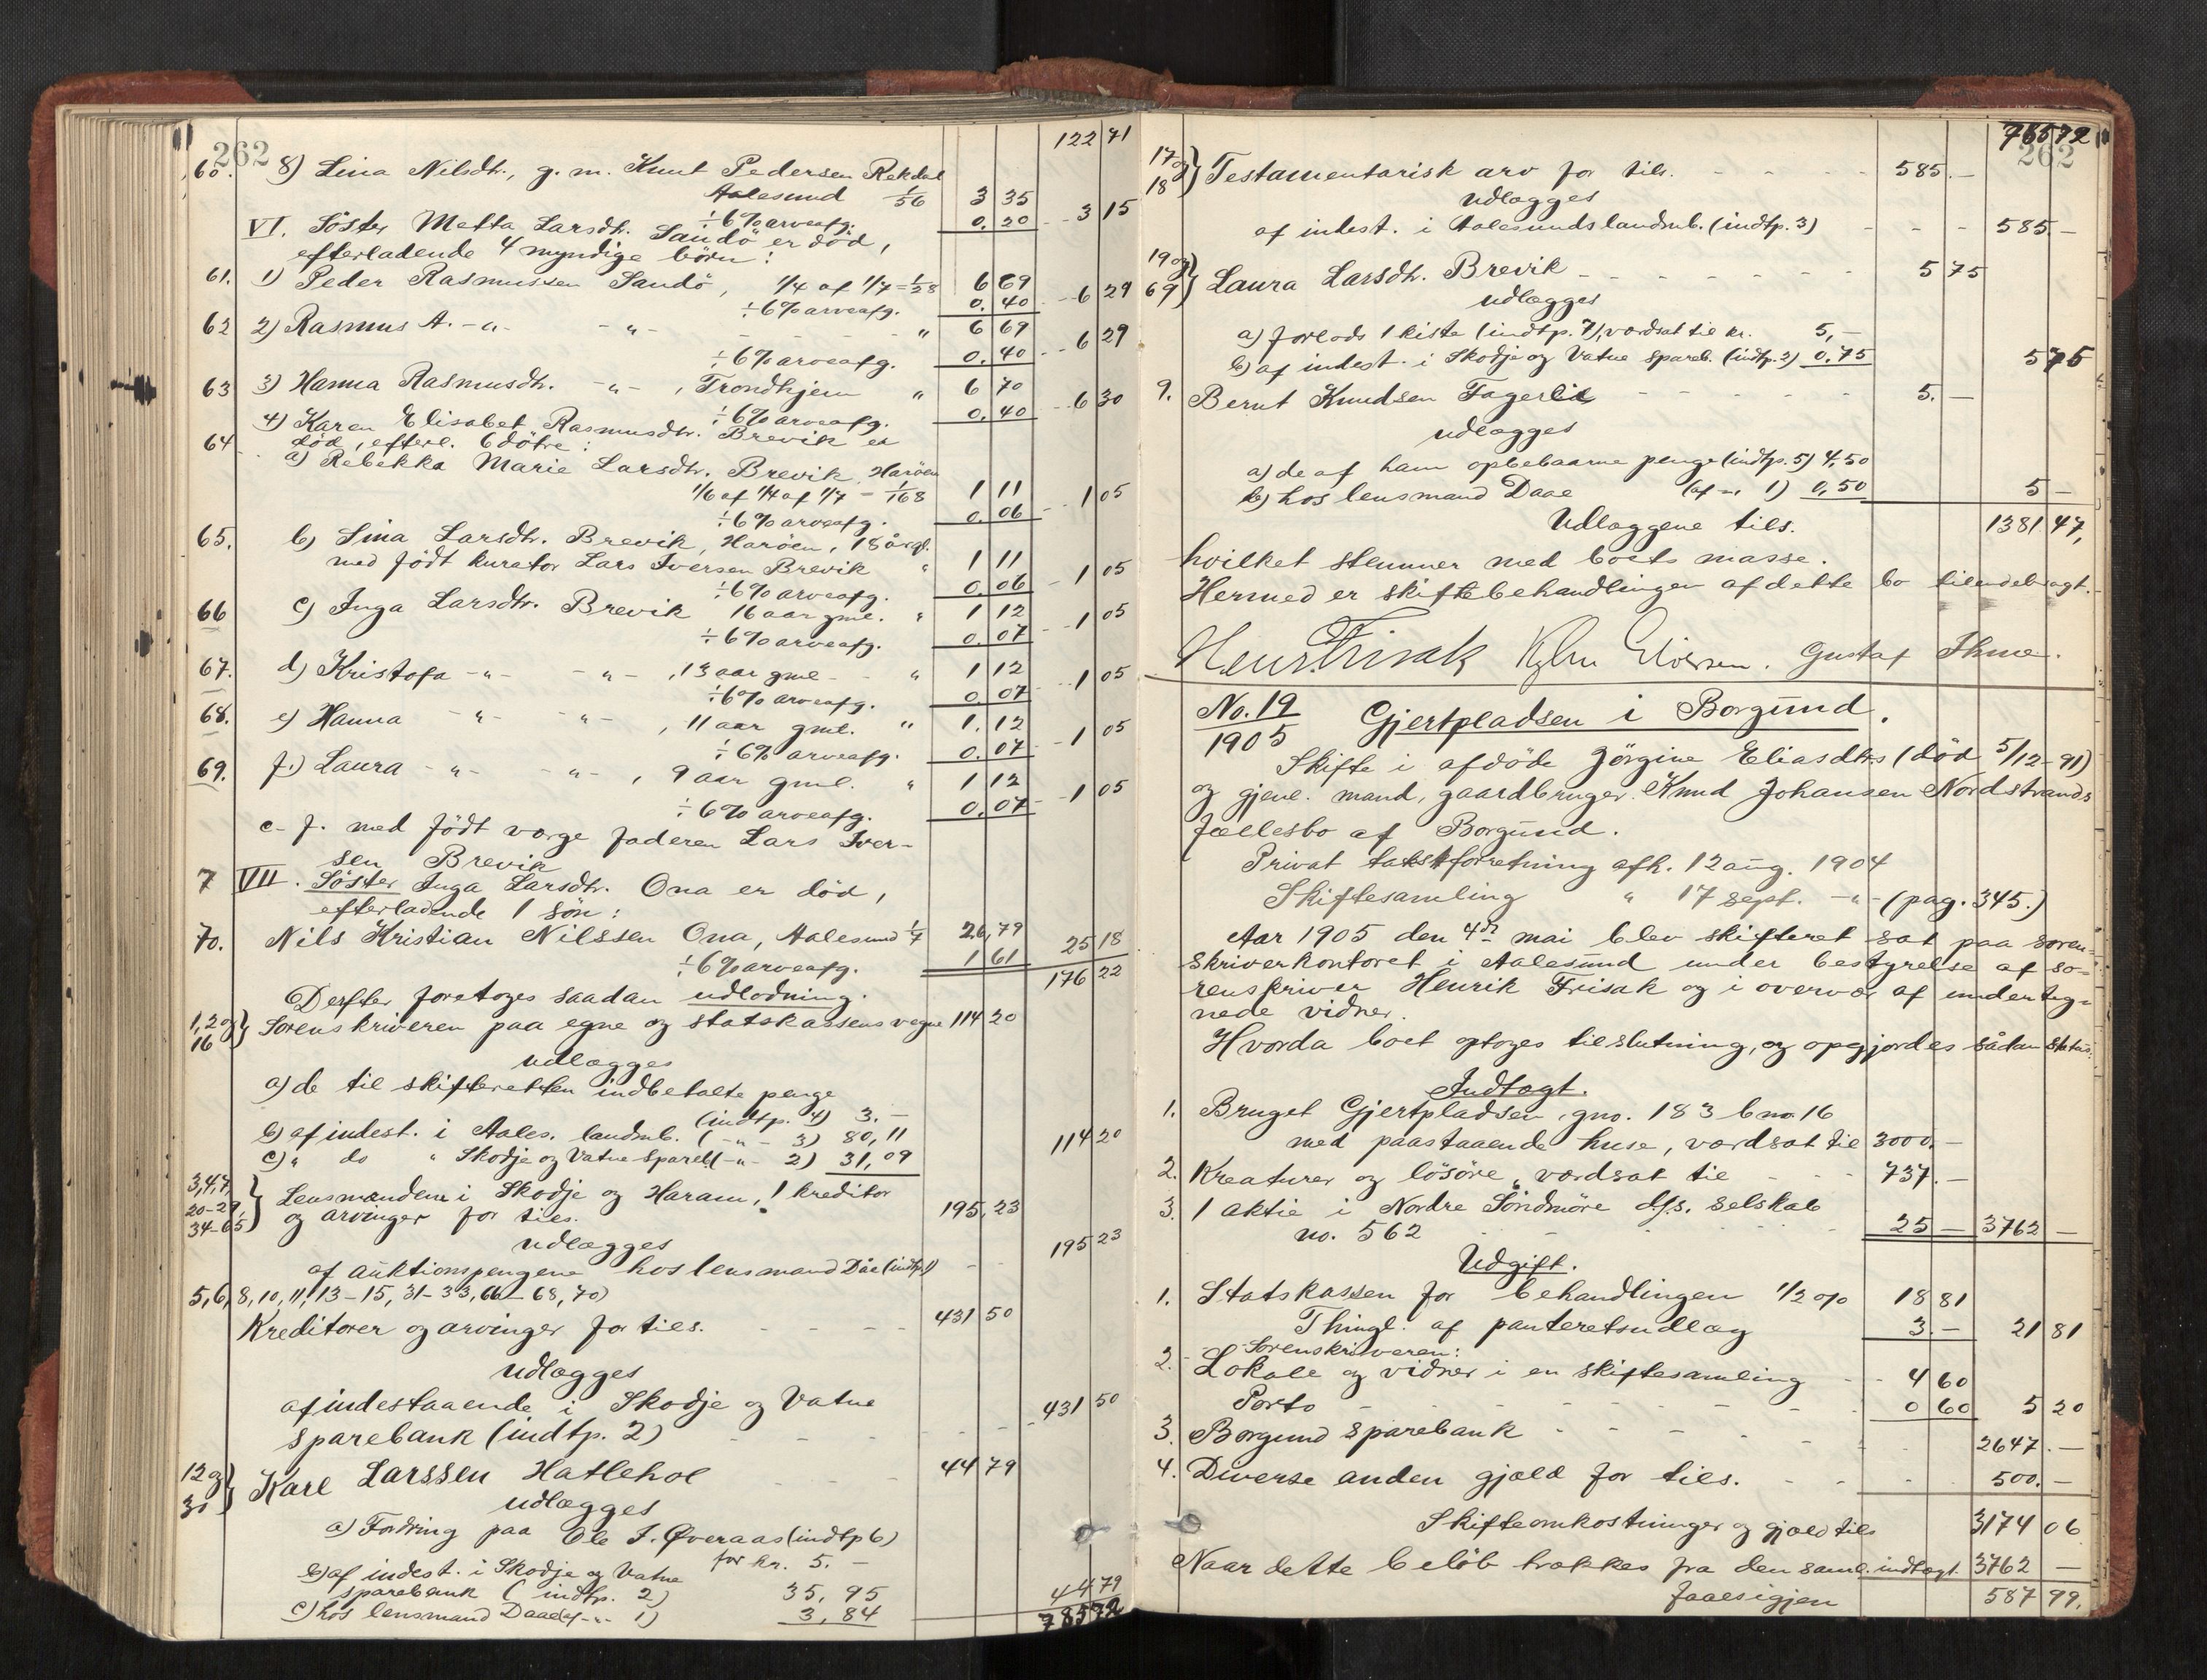 262
122 71
60. 8) Lina Nilsdtr., g. m. Knut Pedersen Rekdal
Aalesund 1/56 3 35
÷ 6 % arveafg. 0. 20 - - 3 15
VI. Söster Metta Larsdtr. Sandö er död,
efterladende 4 myndige börn:
61. 1) Peder Rasmussen Sandö, 1/4 af 1/7 = 1/28 6 69
÷ 6 % arveafg. 0. 40 - - 6 29
62 2) Rasmus A. -"- -"- " 6 69
÷ 6 % arveafg. 0. 40 - - 6 29
63 3) Hanna Rasmusdtr. -"- , Trondhjem " 6 70
÷ 6 % arveafg. 0. 40 - - 6 30
4) Karen Elisabet Rasmusdtr. Brevik er
död, efterl. 6 dötre:
64 a) Rebekka Marie Larsdtr. Brevik, Haröen
1/6 af 1/4 af 1/7 = 1/168 1 11
÷ 6 % arveafg. 0. 06 - 1 05
65. b) Lina Larsdtr. Brevik, Haröen, 18 år gl.
med födt kurator Lars Iversen Brevik " 1 11
÷ 6 % arveafg. 0. 06 - 1 05
66 c) Inga Larsdtr. Brevik 16 aar gml. " 1 12
÷ 6 % arveafg. 0. 07 - - 1 05
67. d) Kristofa -"- -"- , 13 aar gml - " 1 12
÷ 6 % arveafg. 0. 07 - - 1 05
68. e) Hanna -"- -"- , 11 aar gml. " 1. 12
÷ 6 % arveafg. 0. 07 - - 1 05
69. f.) Laura -"- -"- , 9 aar gml. " 1 12
÷ 6 % arveafg. 0. 07 - - 1 05
c - f. med födt værge faderen Lars Iver-
sen Brevik
7 VII. Söster Inga Larsdtr. Ona er död,
efterladende 1 sön:
70. Nils Kristian Nilssen Ona, Aalesund 1/7 26, 79
÷ 6 % arveafg. 1 61 25 18
176 22
Derefter foretoges saadan udlodning.
1, 2 og 16 } Sorenskriveren paa egne og statskassens vegne 114 20
udlægges
a) de til skifteretten indbetalte penge
(indtp. 4) 3. -
b) af indest. i Aales. landmb. ( -"- 3) 80, 11
c) " do " Skodje og Vatne spareb ( -"- 2) 31, 09 114 20
3, 4, 7, 20-29, 34-65 } Lensmændene i Skodje og Haram, 1 kreditor
og arvinger for tils. 195, 23
udlægges
af auktionspengene hos lensmand Dåe (indtp. 1) - - 195 23
5, 6, 8, 10, 11, 13-15, 31-33, 66-68, 70)
Kreditorer og arvinger for tils. - - - - 431 50
udlægges
af indestaaende i Skodje og Vatne
sparebank (indtp. 2) - - - - - 431 50
12 og 30 } Karl Larssen Hatlehol - - - 44 79
udlægges
a) Fordring paa Ole I. Øveraas (indtp 6)
for kr. 5. -
b) af indest. i Skodje og Vatne
sparebank ( indtp. 2) 35, 95
c) hos lensmand Daae (af -"- 1) 3, 84 44 79
78572
76572
262
17 og 18 } Testamentarisk arv for tils. - - - - 585. -
udlægges
af indest. i Aalesunds landmb. (indtp. 3) - - - 585. -
19 og 69 } Laura Larsdtr. Brevik - - - - - - - 5 75
udlægges
a) forlods 1 kiste (indtp. 7), værdsat til kr. 5, -
b) af indest. i Skodje og Vatne spareb. (indtp. 2) 0,75 5 75
9. Bernt Knudsen Fagerli - - - - - 5. -
udlægges
a) de af ham opbebaarne penge (indtp. 5) 4,50
b) hos lensmand Daae (af -"- 1) 0,50 5 -
Udlæggene tils. 1381 47,
hvilket stemmer med boets masse.
Hermed er skiftebehandlingen af dette bo tilendebragt.
Henr. Frisak Gustaf Thue.
No. 19
1905 Gjertpladsen i Borgund.
Skifte i afdöde Jörgine Eliasdtrs (död 5/12-91)
og gjenl. mand, gaardbruger Knud Johansen Nordstrands
fællesbo af Borgund.
Privat takstforretning afh. 12 aug. 1904
Skiftesamling " 17 sept. -"- (pag. 345.)
Aar 1905 den 4de mai blev skifteret sat paa soren-
skriverkontoret i Aalesund under bestyrelse af so-
renskriver Henrik Frisak og i overvær af underteg-
nede vidner.
Hvorda boet optoges til slutning, og opgjordes sådan status.
Indtægt.
1. Bruget Gjertpladsen, gno. 183 bno 16
med paastaaende huse, værdsat til 3000. -
2. Kreaturer og lösöre, værdsat til - - - 737. -
3. 1 aktie i Nordre Söndmöre d/s. selskab
no. 562 25 - 3762 -
Udgift.
1. Statskassen for behandlingen 1/2 o/o 18 81
Thingl. af panteretsudlæg 3. - 21 81
2. Sorenskriveren:
Lokale og vidner i en skiftesamling - - 4 60
Porto - - - - - - - 0 60 5 20
3. Borgund sparebank - - - - - - 2647. -
4. Diverse anden gjæld for tils. - - - 500. -
Skifteomkostninger og gjæld tils 3174 06
Naar dette belöb trækkes fra den saml. indtægt 3762 -
faaes igjen 587 99.